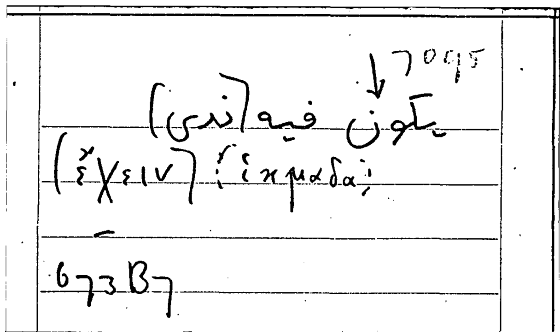 ↓ 7095
يكون فيه (ندى)
(ἔχειν) ἰκμάδα
673B7